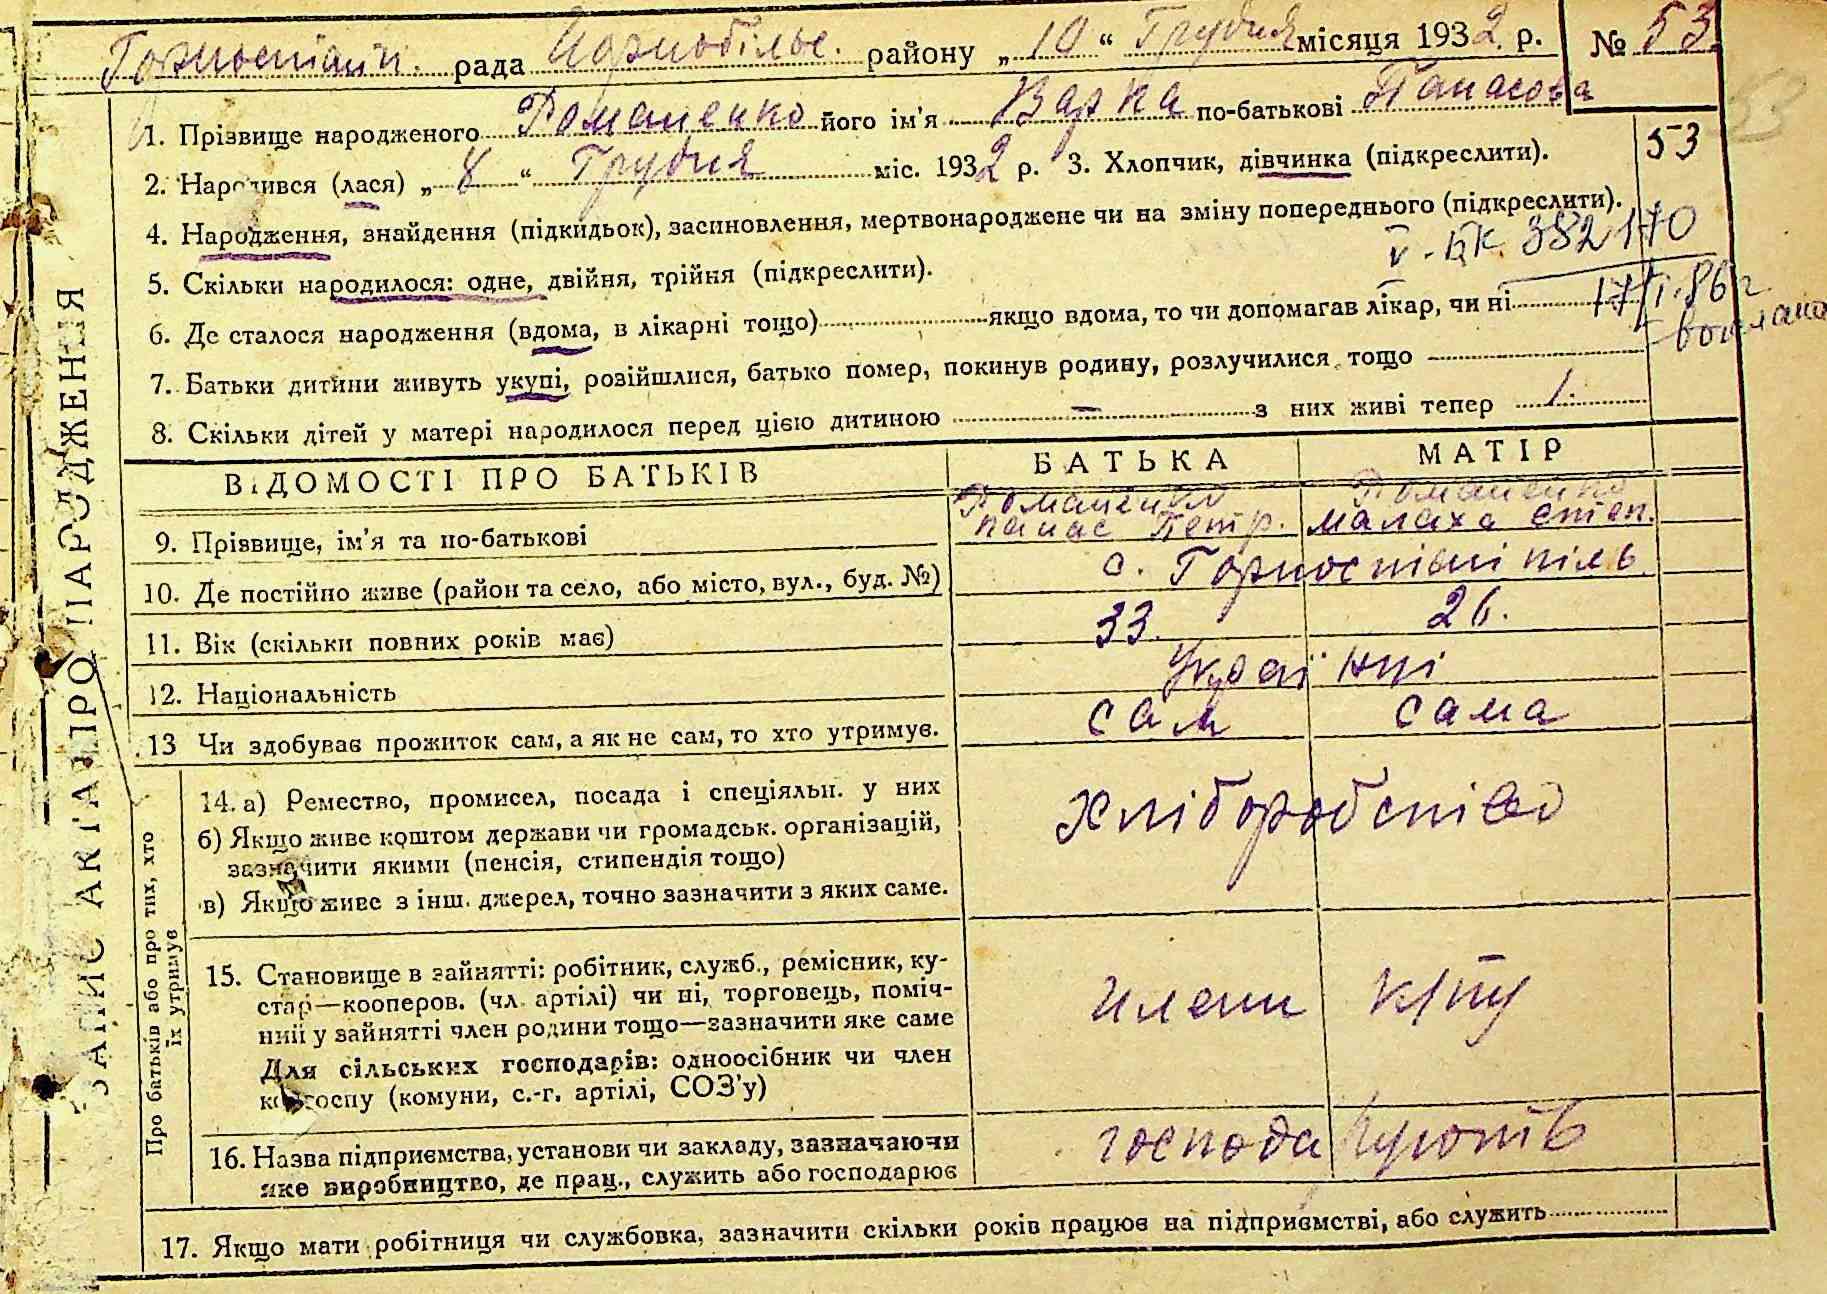 Горностайп. рада Чорнобільс. району „10“ Грудня місяця 1932 р. № 53.
1. Прізвище народженого Романенко його ім'я Варка по-батькові Панасова
53
2. Народився (лася) „8“ Грудня міс. 1932 р. 3. Хлопчик, дівчинка (підкреслити).
53
4. Народження, знайдення (підкидьок), засиновлення, мертвонароджене чи на зміну попереднього (підкреслити).
V-БК 382170
5. Скільки народилося: одне, двійня, трійня (підкреслити).
17/I-86 г
6. Де сталося народження (вдома, в лікарні тощо) якщо вдома, то чи допомагав лікар, чи ні
7. Батьки дитини живуть укупі, розійшлися, батько помер, покинув родину, розлучилися тощо
8. Скільки дітей у матері народилося перед цією дитиною – з них живі тепер 1.
ВІДОМОСТІ ПРО БАТЬКІВ БАТЬКА МАТІР
Романенко Романенко
9. Прізвище, ім'я та по-батькові Панас Петр. Малаха Степ.
10. Де постійно живе (район та село, або місто, вул., буд. №) с. Горностайпіль
11. Вік (скільки повних років має) 33. 26.
12. Національність Українці
13 Чи здобуває прожиток сам, а як не сам, то хто утримує. сам сама
14. а) Ремество, промисел, посада і спеціяльн. у них
б) Якщо живе коштом держави чи громадськ. організацій,
зазначити якими (пенсія, стипендія тощо)
Хліборобство
в) Якщо живе з інш. джерел, точно зазначити з яких саме.
15. Становище в зайнятті: робітник, служб., ремісник, ку-
стар—кооперов. (чл. артілі) чи ні, торговець, поміч-
ний у зайнятті член родини тощо—зазначити яке саме
члени
Для сільських господарів: одноосібник чи член
колгоспу (комуни, с.-г. артілі, СОЗ'у)
16. Назва підприємства, установи чи закладу, зазначаючи
яке виробництво, де прац., служить або господарює
господарюють
17. Якщо мати робітниця чи службовка, зазначити скільки років працює на підприємстві, або служить
ЗАПИС АКТА ПРО НАРОДЖЕННЯ
Про батьків або про тих, хто
їх утримує